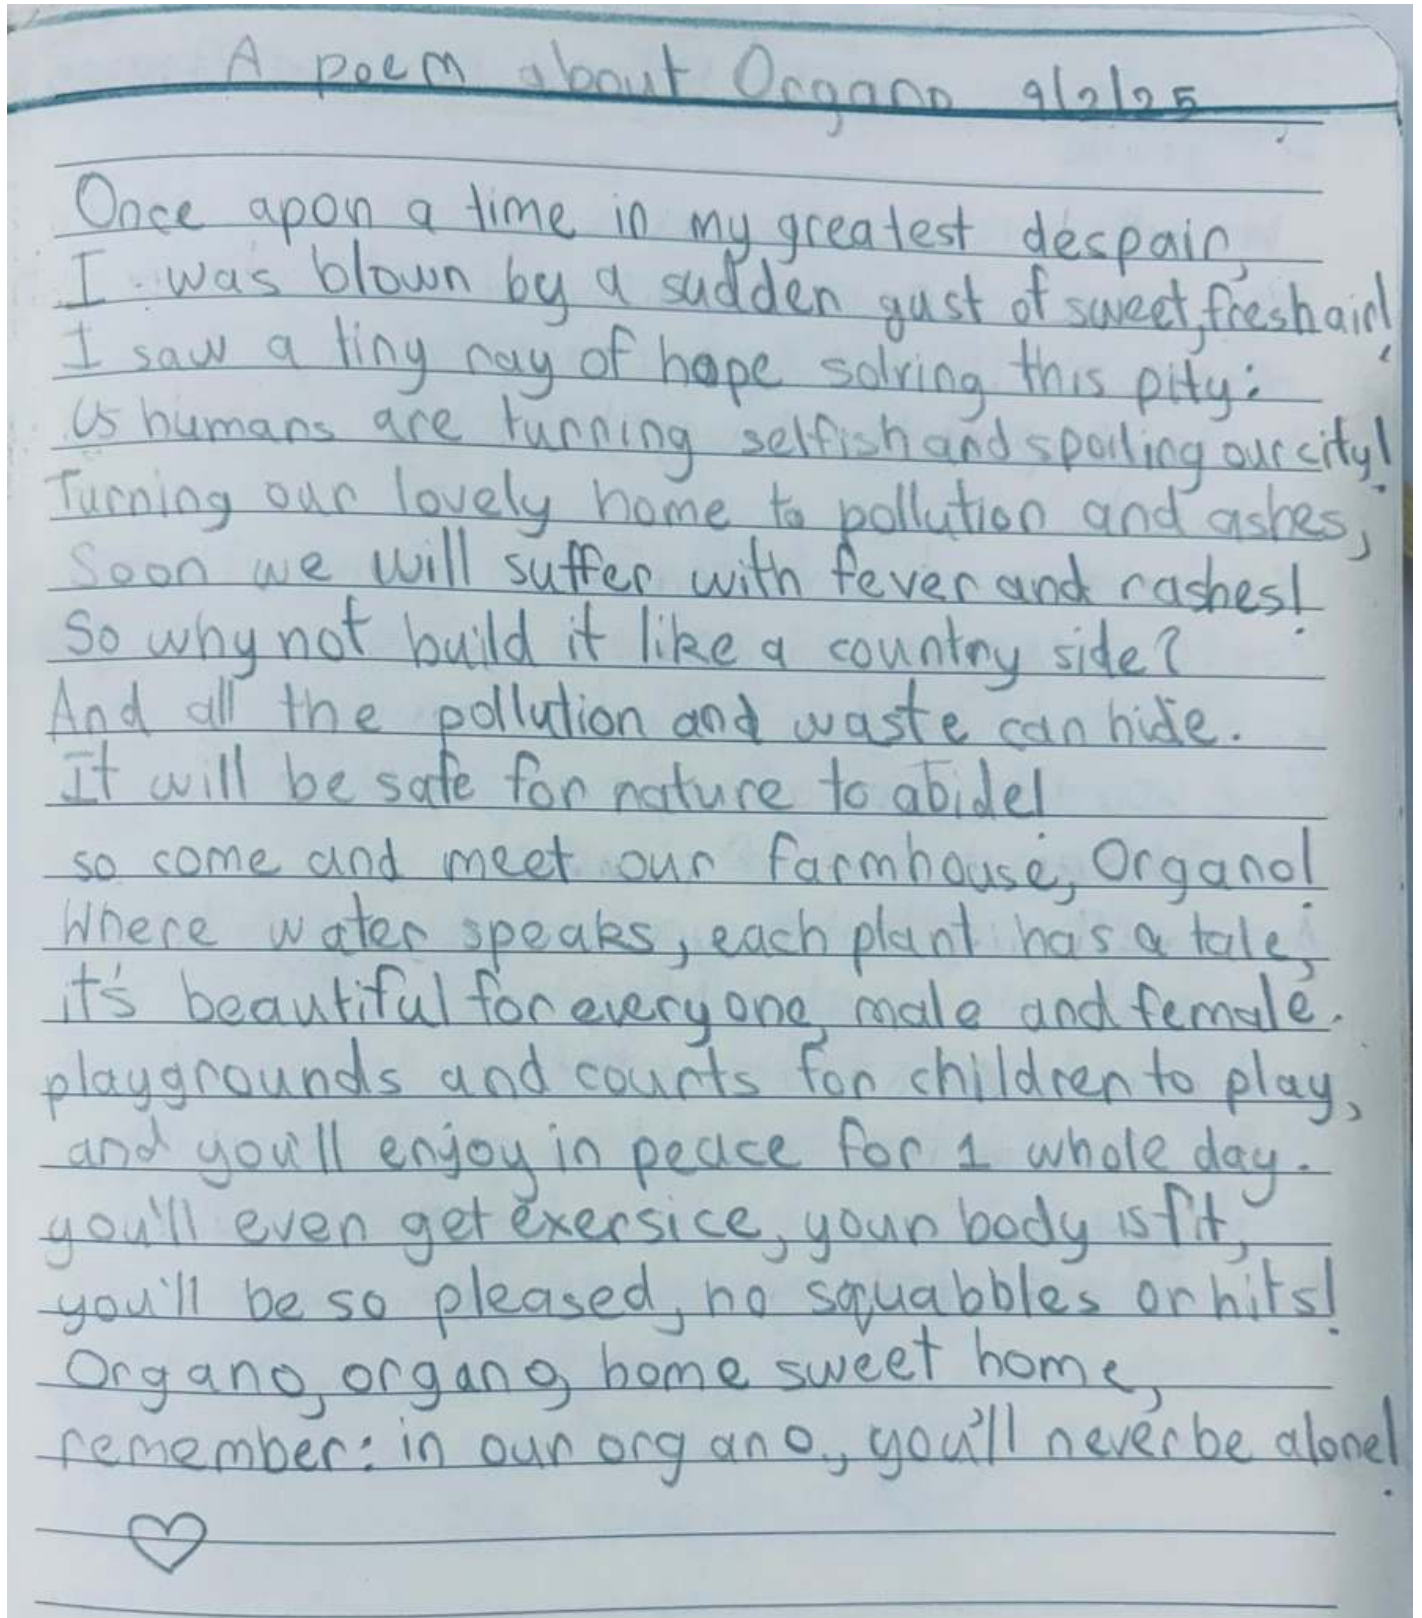 A poem about Organo 9/2/25
Once apon a time in my greatest despair,
I was blown by a sudden gust of sweet, fresh air!
I saw a tiny ray of hope solving this pity:
Us humans are turning selfish and spoiling our city!
Turning our lovely home to pollution and ashes,
Soon we will suffer with fever and rashes!
So why not build it like a country side?
And all the pollution and waste can hide.
It will be safe for nature to abide!
so come and meet our farmhouse, Organo!
Where water speaks, each plant has a tale,
it's beautiful for everyone, male and female.
playgrounds and courts for children to play,
and you'll enjoy in peace for 1 whole day.
you'll even get exersice, your body is fit,
you'll be so pleased, no squabbles or hits!
Organo, organo, home sweet home,
remember: in our organo, you'll never be alone!